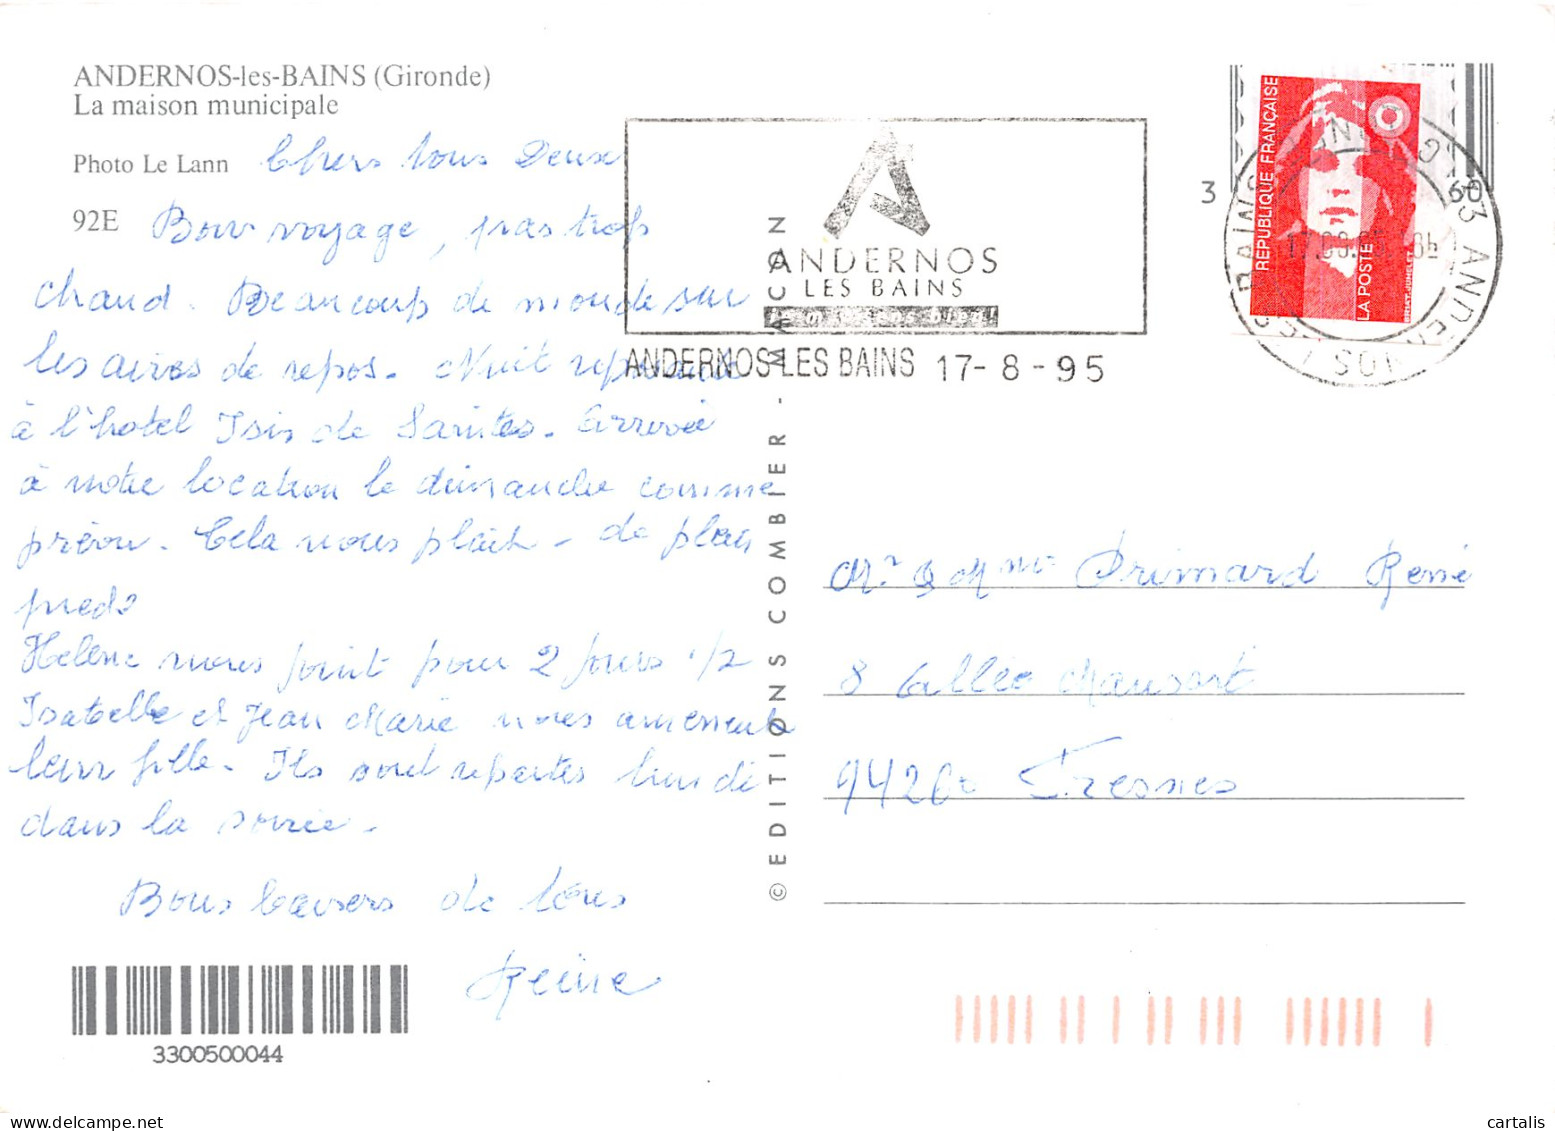 ANDERNOS-les-BAINS (Gironde)
La maison municipale
Photo Le Lann
92E
Chers tous Deux
Bon voyage, pas trop
chaud. Beaucoup de monde sur
les aires de repos. Nuit
à l'hotel Isis de Saintes. Arrivée
à notre location le dimanche comme
prévu. Cela nous plait - de plain
pieds
Hélène nous joint pour 2 jours 1/2
Isabelle et Jean Marie nous amènent
leur fille. Ils sont repartis lundi
dans la soirée.
Bons baisers de tous
Reine
3300500044
© EDITIONS COMBIER - MACON
ANDERNOS
LES BAINS
ANDERNOS-LES BAINS 17-8-95
3 60
RÉPUBLIQUE FRANÇAISE
LA POSTE
33 ANDERNOS
Mr & Mme Primard René
8 Allée Mansart
94260 Fresnes
cartalis